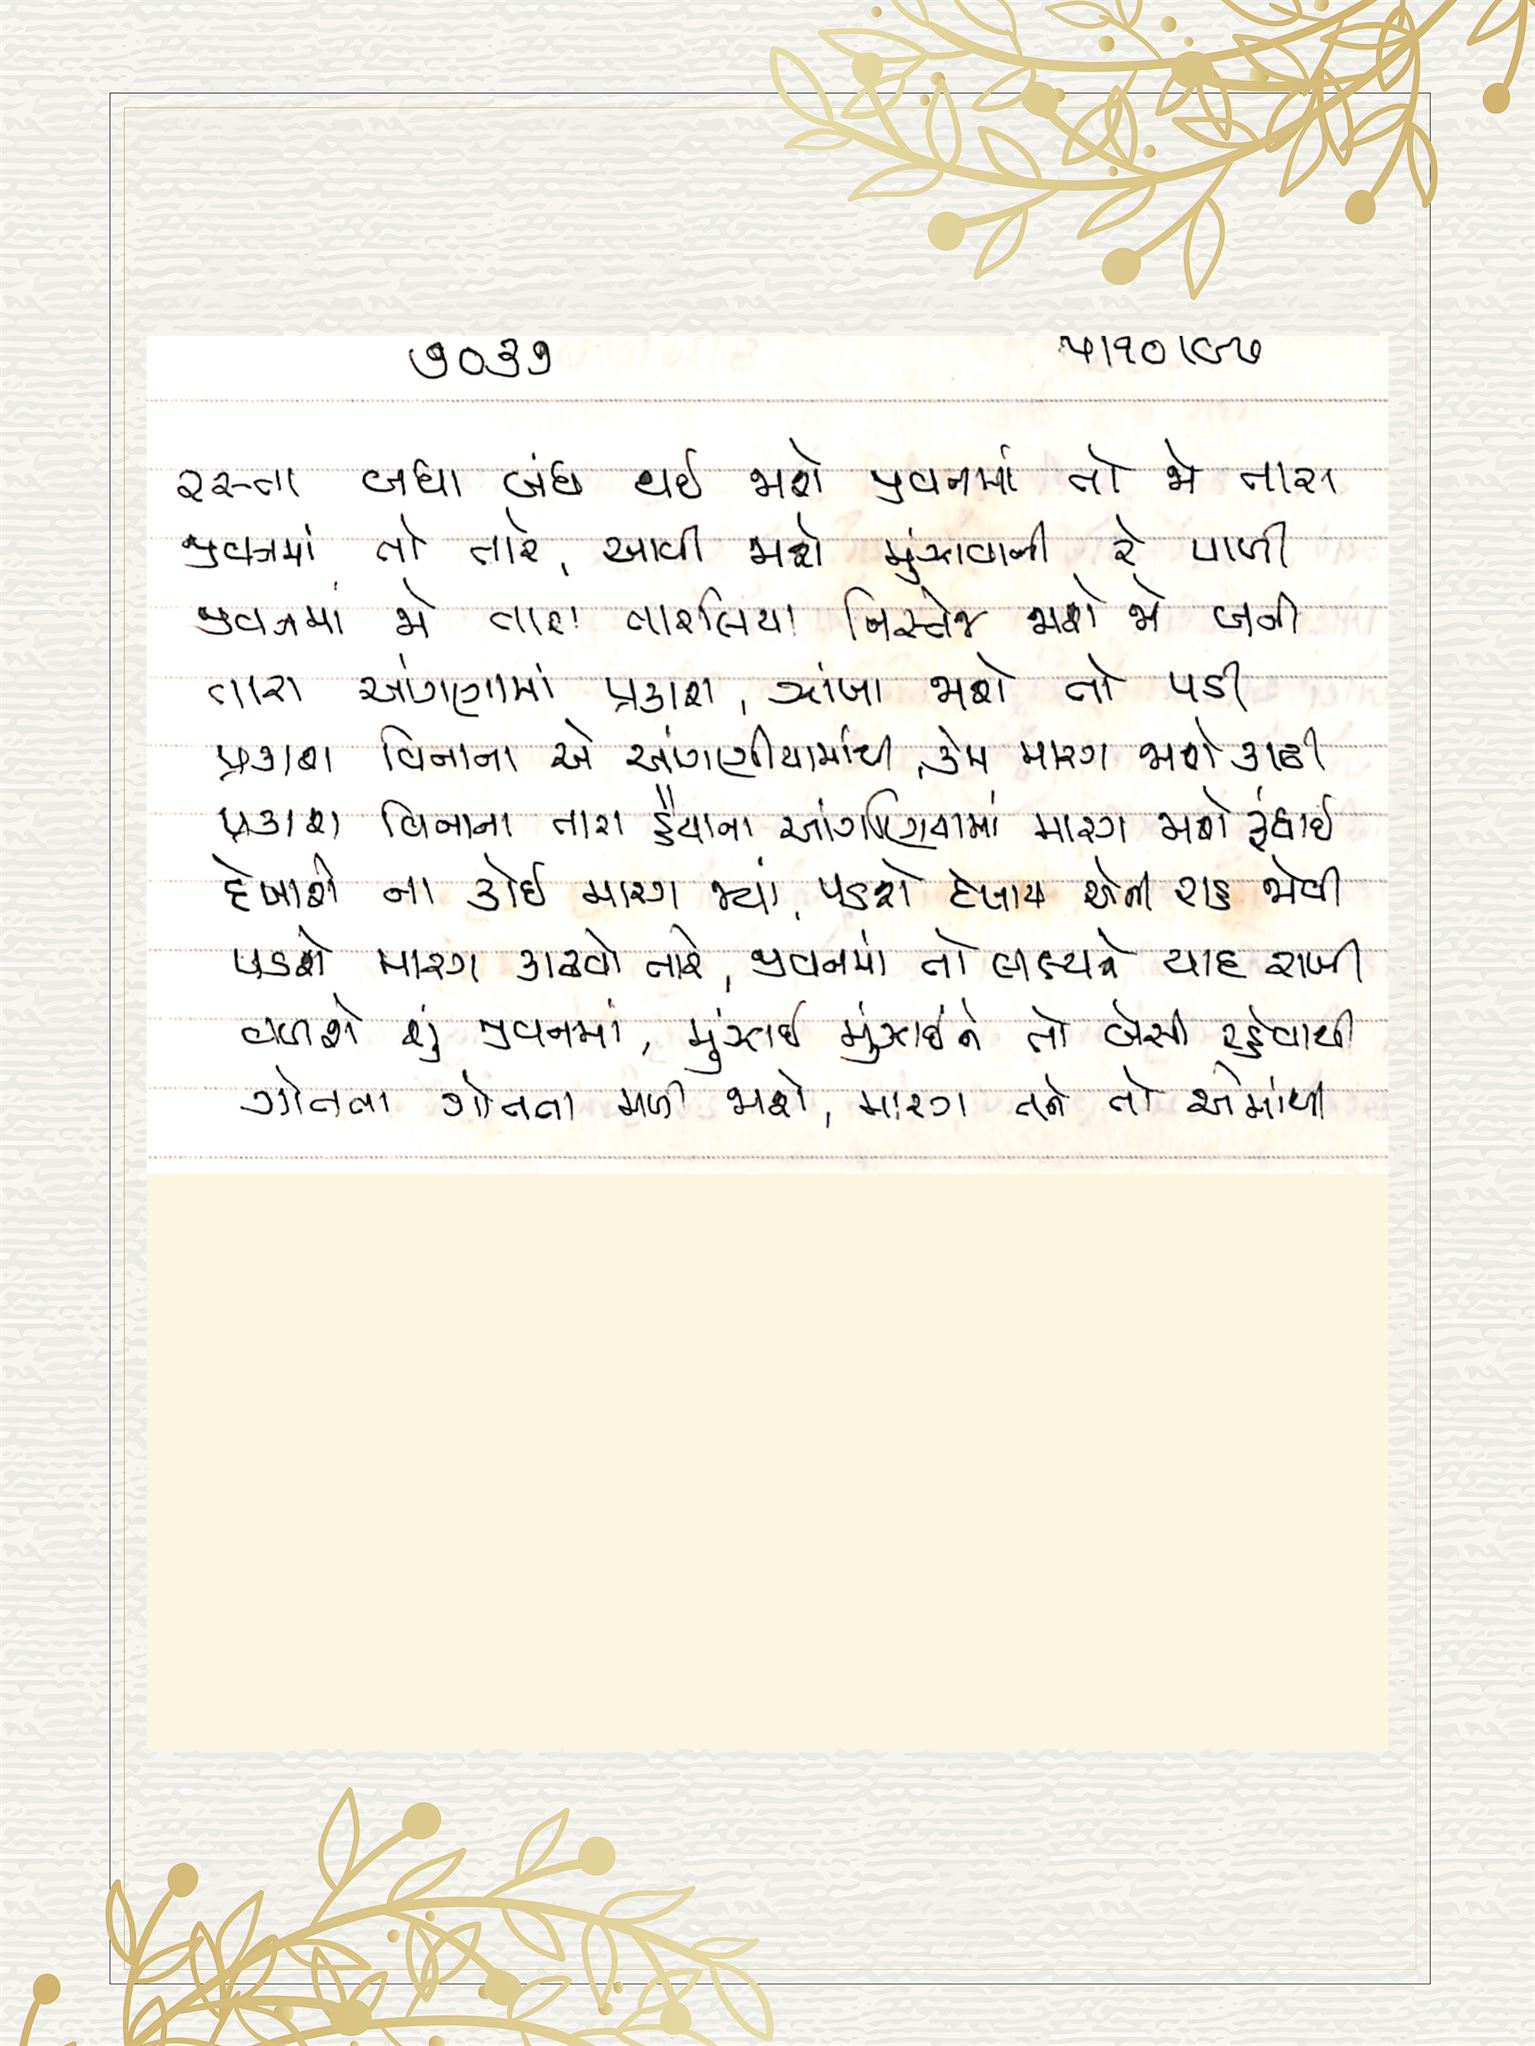 ૭૦૩૭ ૫।૧૦।૯૭
રસ્તા બધા બંધ થઈ જાશે જીવનમાં તો જો તારા
જીવનમાં તો તારે, આવી જાશે મુંઝાવાની રે પાળી
જીવનમાં જો તારા તારલિયા નિસ્તેજ જાશે જો બની
તારા આંગણામાં પ્રકાશ, ઝાંખા જાશે તો પડી
પ્રકાશ વિનાના એ આંગણીયામાંથી, કેમ મારગ જાશે કાઢી
પ્રકાશ વિનાના તારા હૈયાના આંગણિયામાં મારગ જાશે રૂંધાઈ
દેખાશે ના કોઈ મારગ જ્યાં, પડશે દેખાય એની રાહ જોવી
પડશે મારગ કાઢવો તારે, જીવનમાં તો લક્ષ્યને યાદ રાખી
વળશે શું જીવનમાં, મુંઝાઈ મુંઝાઈને તો બેસી રહેવાથી
ગોતતા ગોતતા મળી જાશે, મારગ તને તો એમાંથી